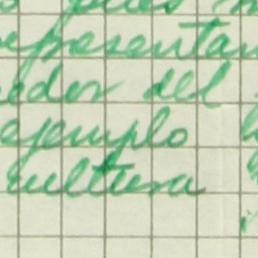 pues
representan
edor del
ejemplo
cultura